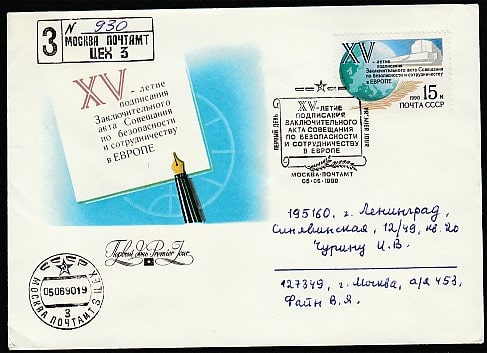 З
N 930
МОСКВА ПОЧТАМТ
ЦЕХ 3
XV
-летие
подписания
Заключительного
акта Совещания
по безопасности
и сотрудничеству
в ЕВРОПЕ
XV
-летие
подписания
Заключительного акта Совещания
по безопасности и сотрудничеству
в ЕВРОПЕ
1990
15к
ПОЧТА СССР
ПЕРВЫЙ ДЕНЬ
PREMIER JOUR
XV-ЛЕТИЕ
ПОДПИСАНИЯ
ЗАКЛЮЧИТЕЛЬНОГО
АКТА СОВЕЩАНИЯ
ПО БЕЗОПАСНОСТИ
И СОТРУДНИЧЕСТВУ
В ЕВРОПЕ
МОСКВА-ПОЧТАМТ
05·06·1990
Первый день Premier Jour
195160. г. Ленинград,
Синявинская, 12/49, кв. 20
Чурину И.В.
127349, г. Москва, а/я 453,
Файн В.Я.
СССР
05069019
МОСКВА ПОЧТАМТ S ЦЕХ
3